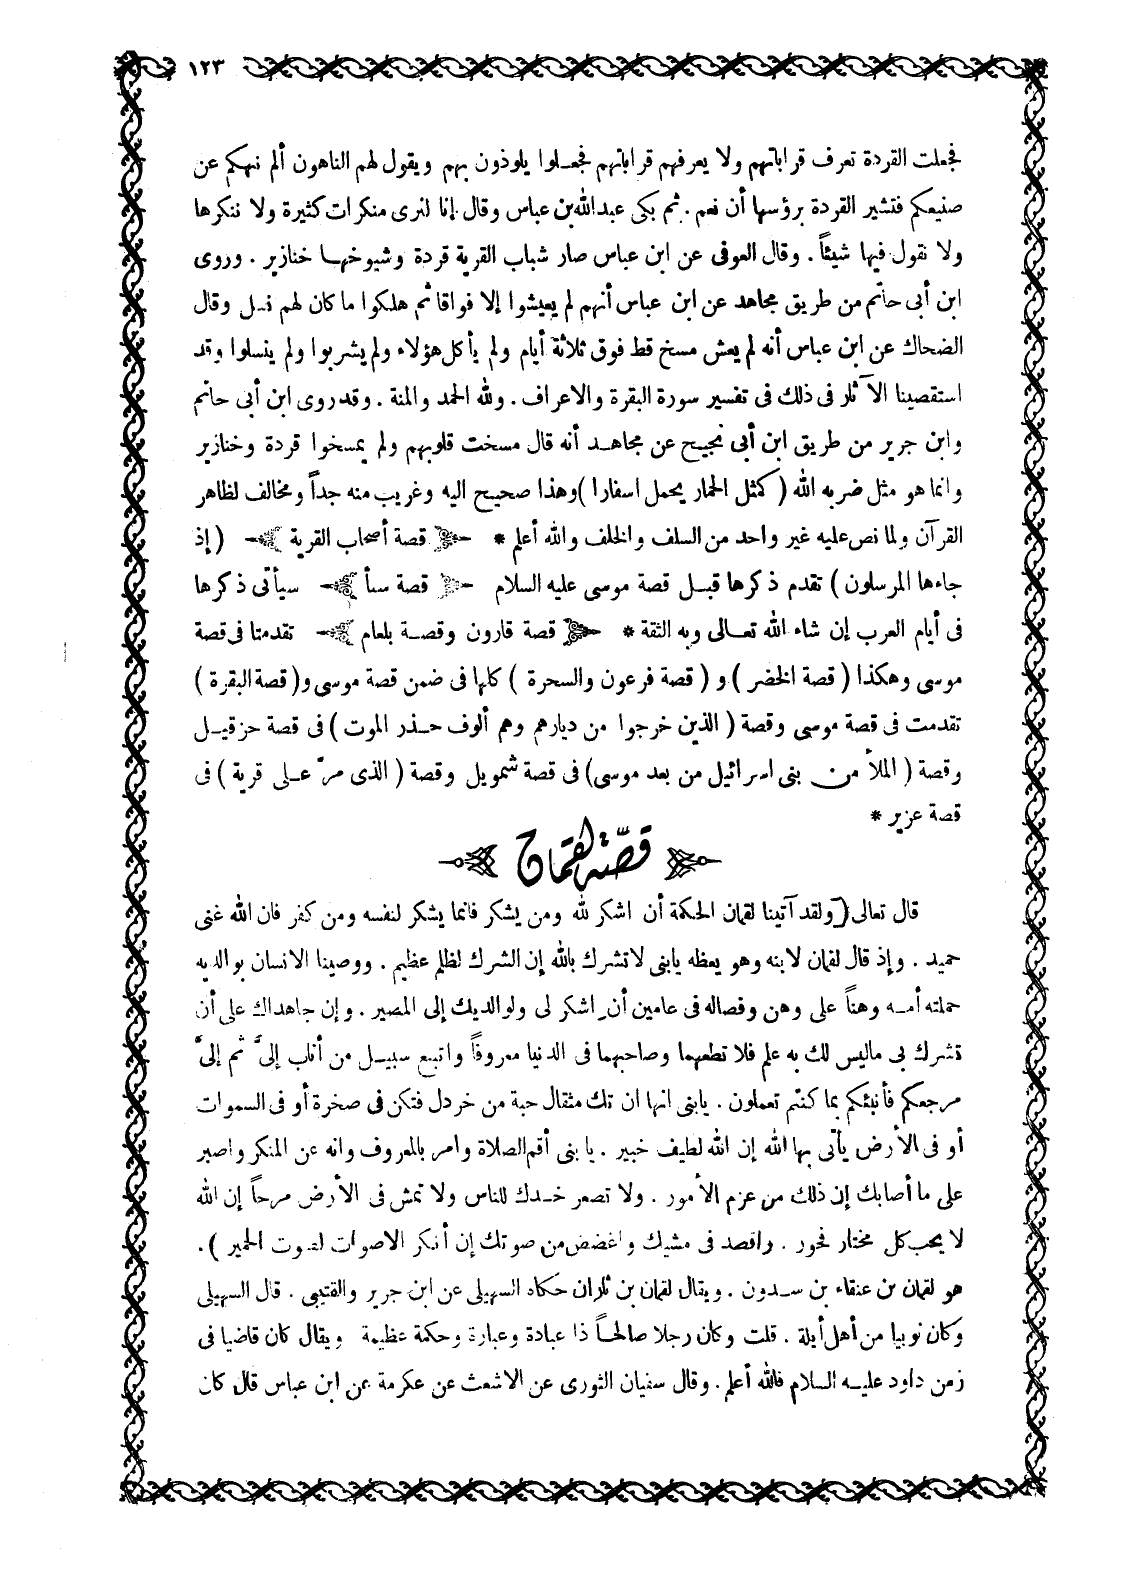 ١٢٣
فجعلت القردة تعرف قراباتهم ولا يعرفهم قراباتهم فجعلوا يلوذون بهم ويقول لهم الناهون ألم ننهكم عن
صنيعكم فتشير القردة برؤسها أن نعم . ثم بكى عبد الله بن عباس وقال إنا لنرى منكرات كثيرة ولا ننكرها
ولا نقول فيها شيئاً . وقال العوفى عن ابن عباس صار شباب القرية قردة وشيوخها خنازير . وروى
ابن أبى حاتم من طريق مجاهد عن ابن عباس أنهم لم يعيشوا إلا فواقا ثم هلكوا ما كان لهم نسل وقال
الضحاك عن ابن عباس أنه لم يعش مسخ قط فوق ثلاثة أيام ولم يأكل هؤلاء ولم يشربوا ولم ينسلوا وقد
استقصينا الآثار فى ذلك فى تفسير سورة البقرة والاعراف . ولله الحمد والمنة . وقد روى ابن أبى حاتم
وابن جرير من طريق ابن أبى نجيح عن مجاهد أنه قال مسخت قلوبهم ولم يمسخوا قردة وخنازير
وانما هو مثل ضربه الله ( كمثل الحمار يحمل اسفارا ) وهذا صحيح اليه وغريب منه جداً ومخالف لظاهر
القرآن ولما نص عليه غير واحد من السلف والخلف والله أعلم * قصة أصحاب القرية ( إذ
جاءها المرسلون ) تقدم ذكرها قبل قصة موسى عليه السلام قصة سبأ سيأتى ذكرها
فى أيام العرب إن شاء الله تعالى وبه الثقة * قصة قارون وقصة بلعام تقدمتا فى قصة
موسى وهكذا ( قصة الخضر ) و ( قصة فرعون والسحرة ) كلها فى ضمن قصة موسى و( قصة البقرة )
تقدمت فى قصة موسى وقصة ( الذين خرجوا من ديارهم وهم ألوف حذر الموت ) فى قصة حزقيل
وقصة ( الملأ من بنى اسرائيل من بعد موسى) فى قصة شمويل وقصة ( الذى مرّ على قرية ) فى
قصة عزير *
قصّة لقمان
قال تعالى ( ولقد آتينا لقمان الحكمة أن اشكر لله ومن يشكر فانما يشكر لنفسه ومن كفر فان الله غنى
حميد . وإذ قال لقمان لابنه وهو يعظه يابنى لا تشرك بالله إن الشرك لظلم عظيم . ووصينا الانسان بوالديه
حملته أمه وهناً على وهن وفصاله فى عامين أن اشكر لى ولوالديك إلى المصير . وإن جاهداك على أن
تشرك بى ماليس لك به علم فلا تطعهما وصاحبهما فى الدنيا معروفاً واتبع سبيل من أناب إلىَّ ثم إلىَّ
مرجعكم فأنبئكم بما كنتم تعملون . يابنى انها ان تك مثقال حبة من خردل فتكن فى صخرة أو فى السموات
أو فى الأرض يأتى بها الله إن الله لطيف خبير . يا بنى أقم الصلاة وامر بالمعروف وانه عن المنكر واصبر
على ما أصابك إن ذلك من عزم الأمور . ولا تصعر خدك للناس ولا تمش فى الأرض مرحاً إن الله
لا يحب كل مختار فخور . واقصد فى مشيك واغضض من صوتك إن أنكر الاصوات لصوت الحمير ) .
هو لقمان بن عنقاء بن سدون . ويقال لقمان بن ثاران حكاه السهيلى عن ابن جرير والقتيبى . قال السهيلى
وكان نوبيا من أهل أيلة . قلت وكان رجلا صالحاً ذا عبادة وعبارة وحكمة عظيمة ويقال كان قاضيا فى
زمن داود عليه السلام فالله أعلم . وقال سفيان الثورى عن الاشعث عن عكرمة عن ابن عباس قال كان